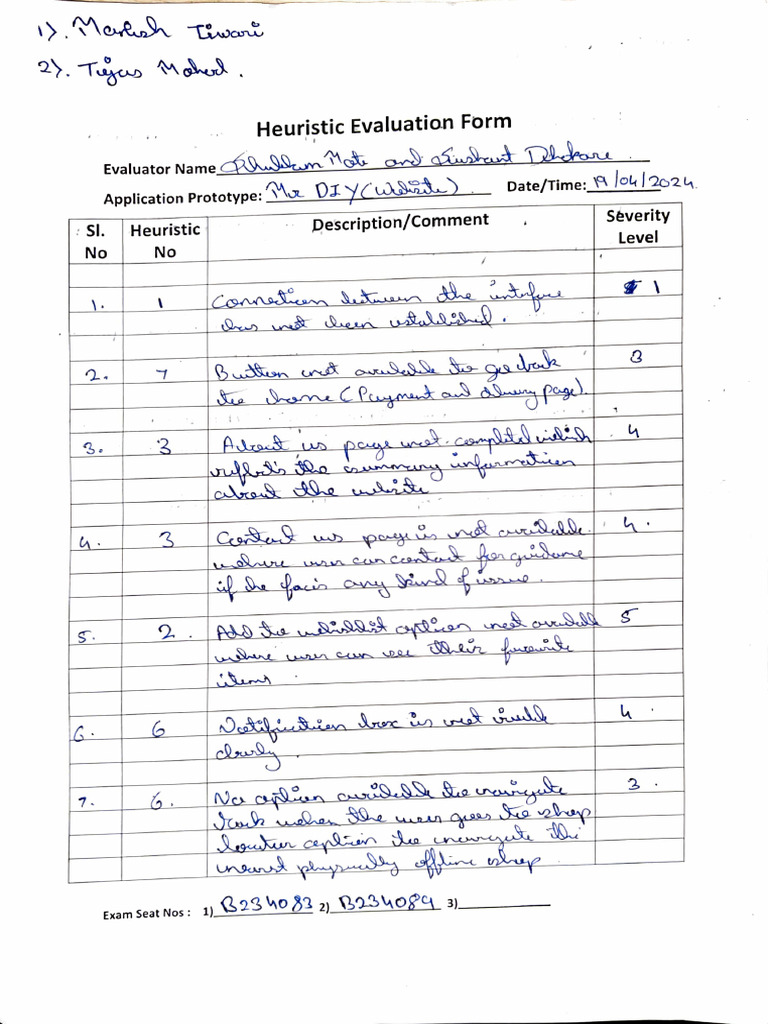 1). Manish Tiwari
2). Tejas
Heuristic Evaluation Form
Evaluator Name Mate and Sushant
Application Prototype: Mr DIY (Website) Date/Time: 19/04/2024
Sl. No Heuristic No Description/Comment Severity Level
1. 1 Connection between the interface 1
has not been established.
2. 7 Button not available to go back 3
to home (Payment and delivery page).
3. 3 About us page not completed which 4
reflects the summary information
about the website
4. 3 Contact us page is not available 4.
where user can contact for guidance
if he faces any kind of issue.
5. 2. Add to wishlist option not available 5
where user can see their favourite
items
6. 6 Notification box is not visible 4.
clearly.
7. 6. No option available to navigate 3.
back when the user goes to shop
locator option to navigate the
nearest physically offline shop
Exam Seat Nos : 1) B234083 2) B234089 3)